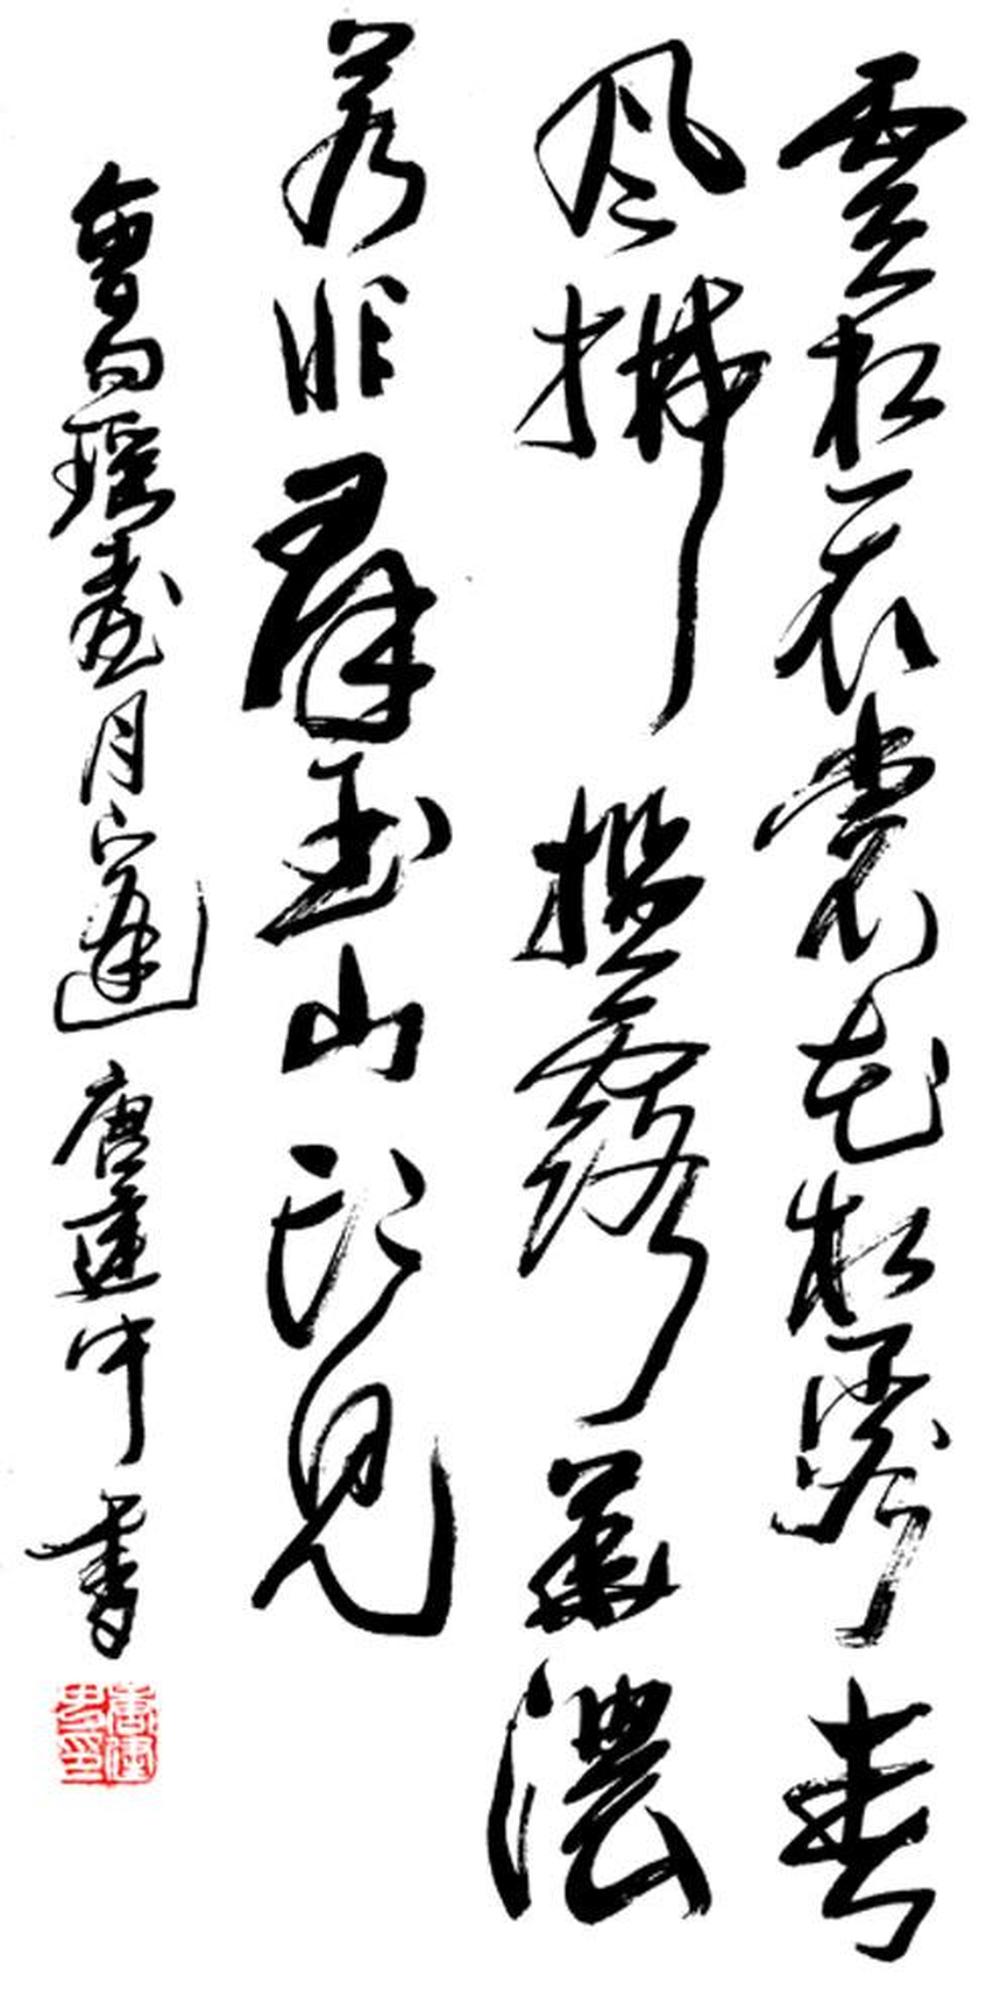 雲想衣裳花想容春
風拂檻露華濃
若非群玉山頭見
會向瑤臺月下逢 唐建中書